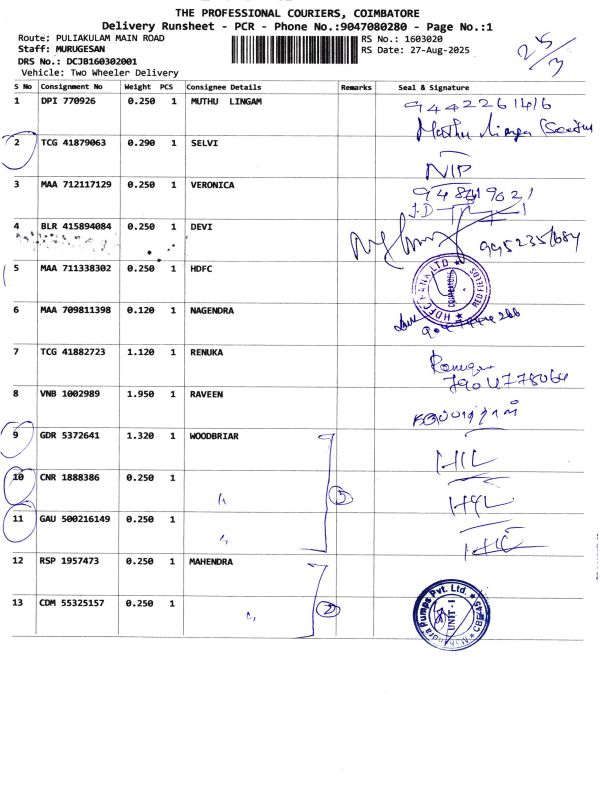 THE PROFESSIONAL COURIERS, COIMBATORE
Delivery Runsheet - PCR - Phone No.:9047080280 - Page No.:1
Route: PULIAKULAM MAIN ROAD
RS No.: 1603020
Staff: MURUGESAN
RS Date: 27-Aug-2025
DRS No.: DCJB160302001
Vehicle: Two Wheeler Delivery
25/3
S No Consignment No Weight PCS Consignee Details Remarks Seal & Signature
1 DPI 770926 0.250 1 MUTHU LINGAM 9442261416
2 TCG 41879063 0.290 1 SELVI NIP
3 MAA 712117129 0.250 1 VERONICA
4 BLR 415894084 0.250 1 DEVI
5 MAA 711338302 0.250 1 HDFC HDFC BANK LTD COIMBATORE RED FIELDS
6 MAA 709811398 0.120 1 NAGENDRA
7 TCG 41882723 1.120 1 RENUKA
8 VNB 1002989 1.950 1 RAVEEN
9 GDR 5372641 1.320 1 WOODBRIAR
10 CNR 1888386 0.250 1 " 3
11 GAU 500216149 0.250 1 "
12 RSP 1957473 0.250 1 MAHENDRA
13 CDM 55325157 0.250 1 " 2 Mahendra Pumps Pvt. Ltd. UNIT - I CBE-45